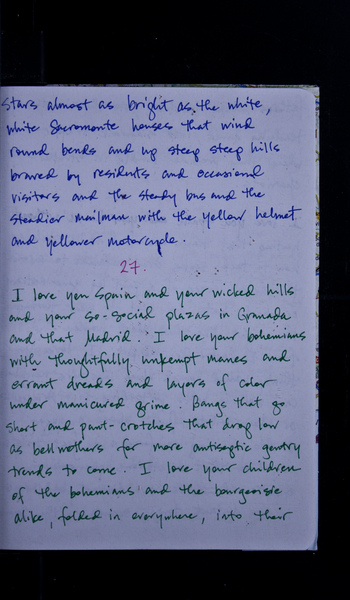 stars almost as bright as the white,
white Sacromonte houses that wind
round bends and up steep steep hills
braved by residents and occasional
visitors and the steady bus and the
steadier mailman with the yellow helmet
and yellower motorcycle.
27.
I love you Spain and your wicked hills
and your so-social plazas in Granada
and that Madrid. I love your bohemians
with thoughtfully unkempt manes and
errant dreads and layers of color
under manicured grime. Bangs that go
short and pant-crotches that drag low
as bellwethers for more antiseptic gentry
trends to come. I love your children
of the bohemians and the bourgeoisie
alike, folded in everywhere, into their